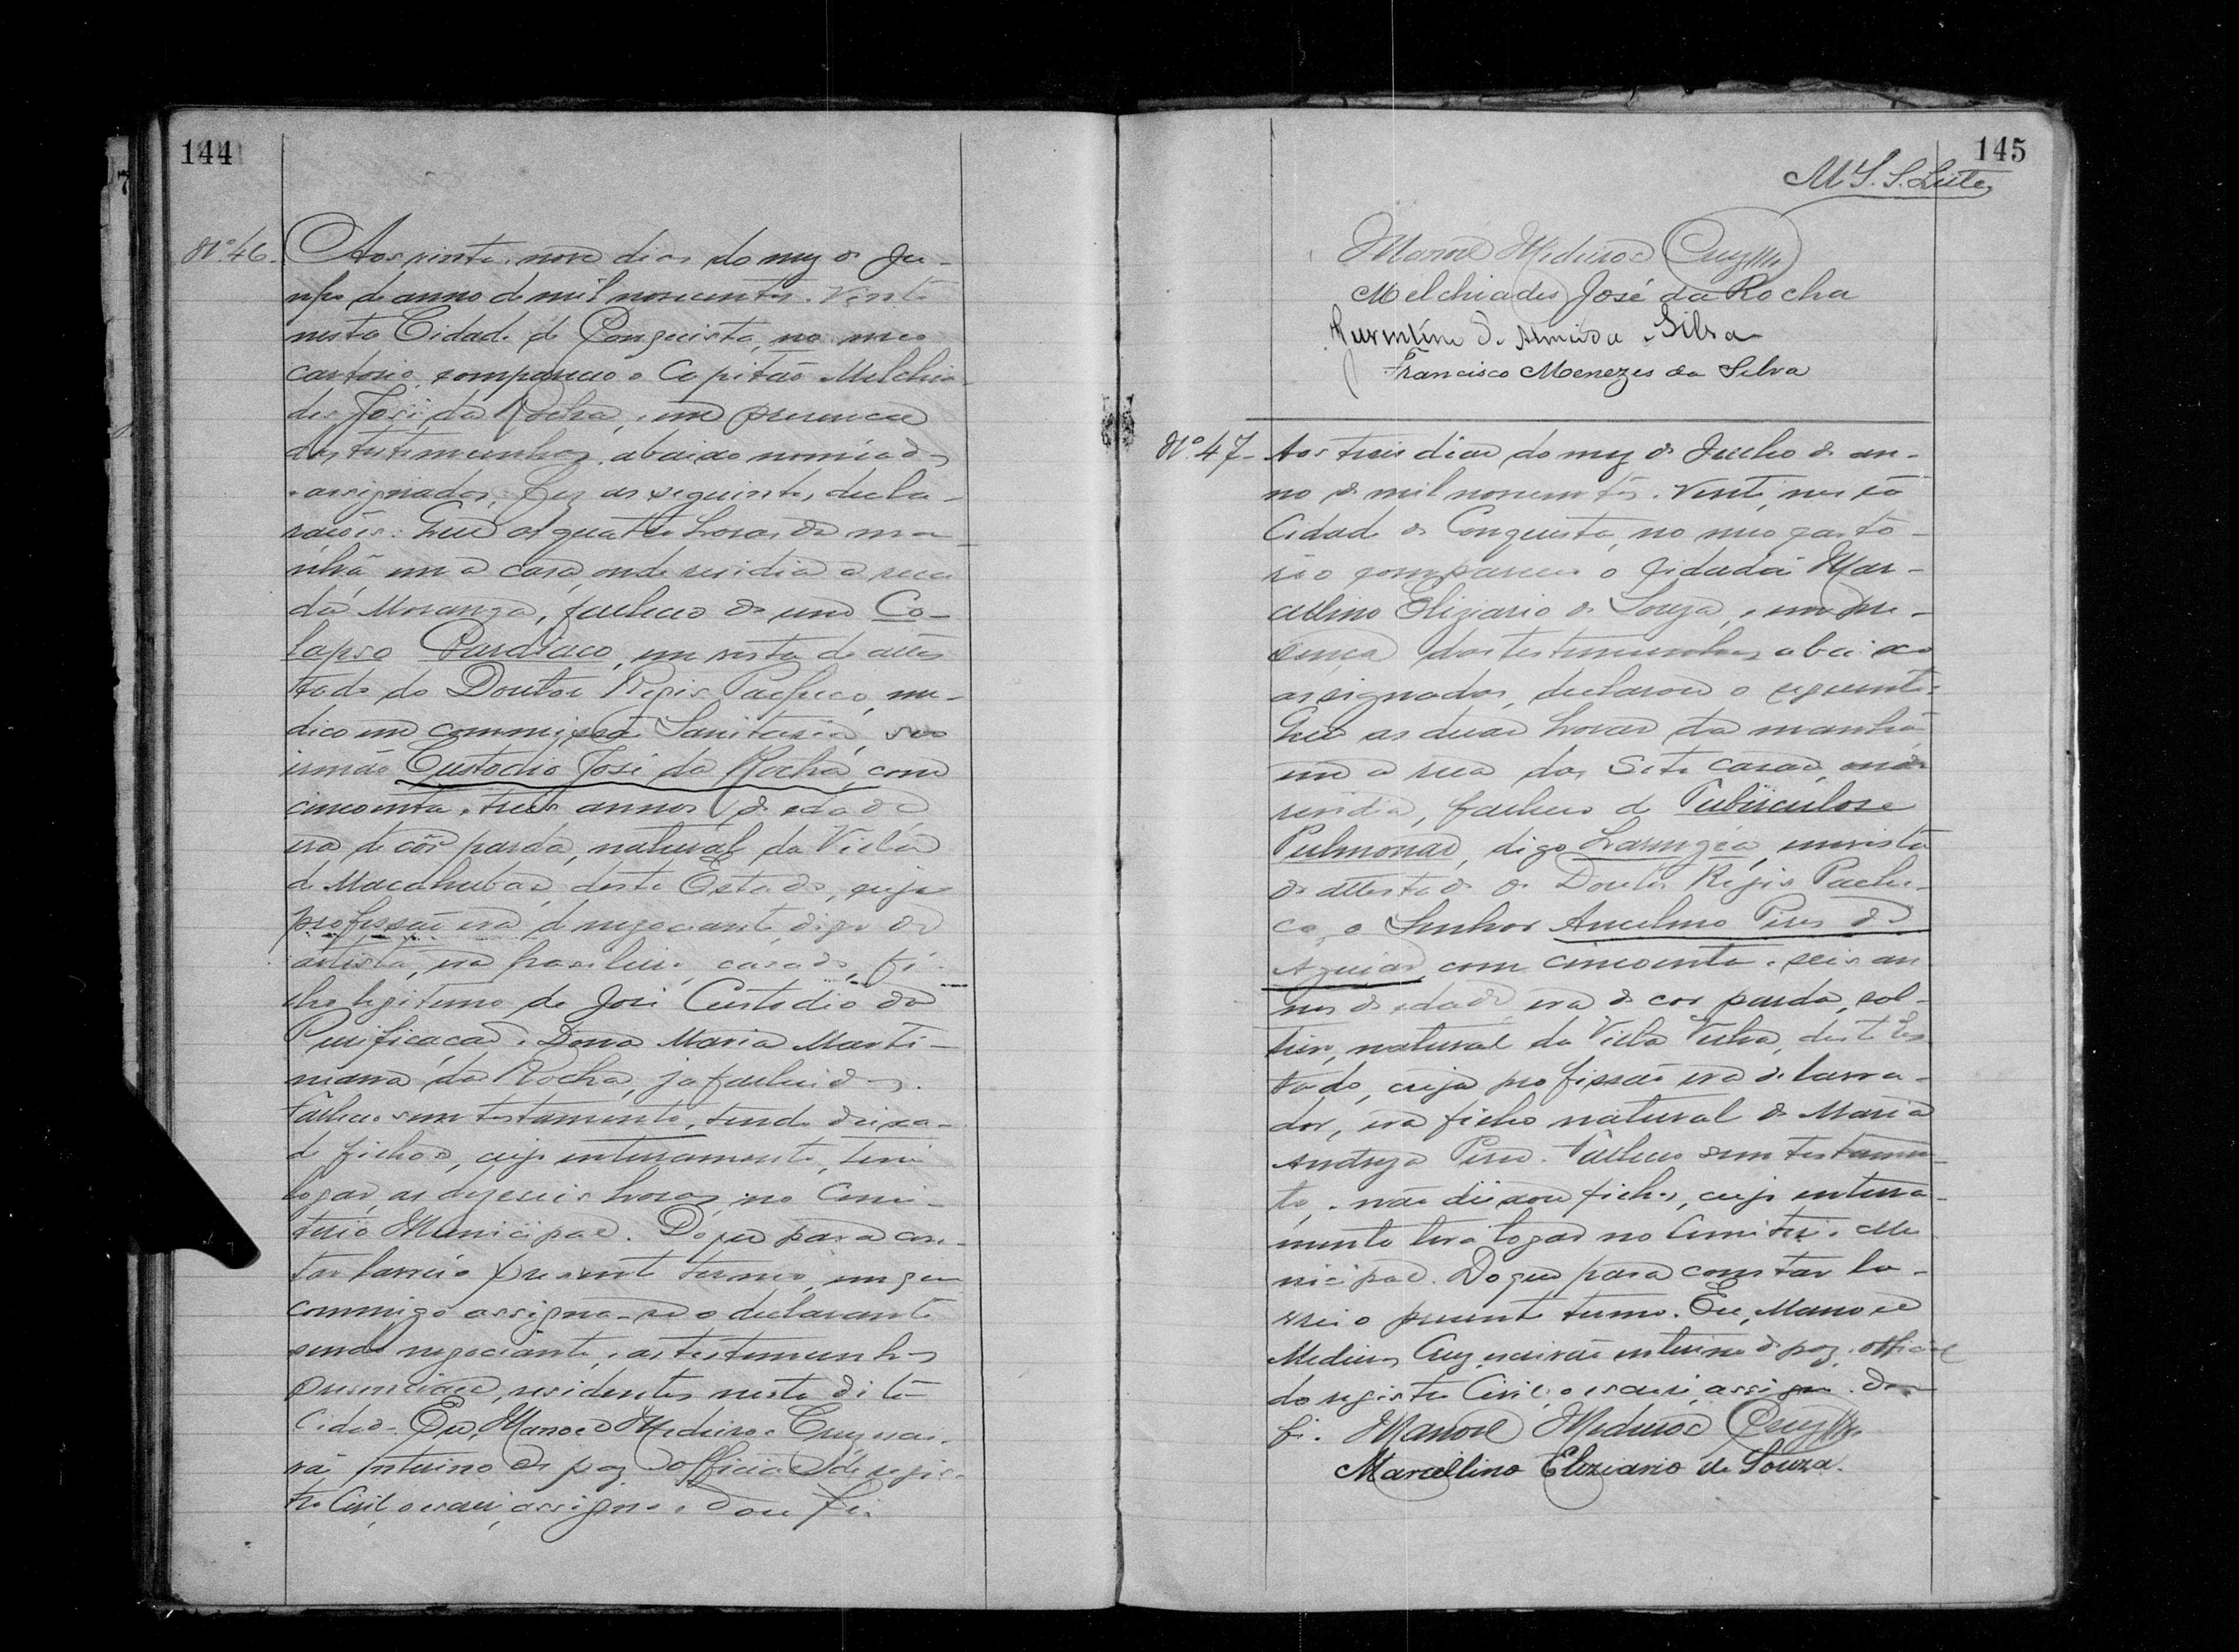 144
Nº 46. Aos vinte e nove dias do mez de Ju-
nho do anno de mil novecentos e vinte
nesta Cidade de Conquista, no meu
cartorio compareceu o Capitão Melchia-
des José da Rocha, e em presença
das testemunhas abaixo nomiadas
e assignadas, fez as seguintes decla-
rações: Que as quatro horas da ma-
nhã em a casa, onde residia a rua
da Moranga, falleceu de um Co-
lapso Cardiaco, em vista do attes
tado do Doutor Regis Pacheco, me-
dico em commissão Sanitaria, seu
irmão Custodio José da Rocha, com
cincoenta e tres annos de edade
era de côr parda, natural da Villa
de Macahubas, deste Estado, cuja
profissão era de negociante, digo de
artista, era brasileiro, casado, fi-
lho legitimo de José Custodio da
Purificação e Dona Maria Marti-
niana da Rocha, já fallecidos.
Falleceu sem testamento, tendo deixa-
do filhos, cujo enterramento, terá
logar, as dezeseis horas, no Cemi-
terio Municipal. Do que para cons-
tar lavrei o presente termo, em que
commigo assigna-se o declarante
sendo negociante, e as testemunhas
presenciaes, residentes nesta dita
Cidade. Eu, Manoel Medeiros Cruz, escri-
vão interino de paz e official do regis-
tro Civil, o escrevi, assigno e dou fé.
145
M S. S. Leite
Manoel Medeiros Cruz
Melchiades José da Rocha
Juventino de Almeida e Silva
Francisco Menezes da Silva
Nº 47- Aos treis dias do mez de Julho do an-
no de mil novecentos e vinte, nesta
Cidade de Conquista, no meo carto-
rio compareceu o cidadão Mar-
cellino Eliziario de Souza, e em pre-
sença das testemunhas abaixo
assignadas, declarou o seguinte:
Que as duas horas da manhã
em a rua das Sete casas, onde
residia, falleceu de Tuberculose
Pulmonar, digo Laryngéa, em vista
do attestado do Doutor Régis Pache-
co, o Senhor Ancelmo Pires de
Aguiar, com cincoenta e seis an
nos de edade, era de cor parda, sol-
teiro, natural da Villa Velha, deste Es
tado, cuja profissão era de lavra-
dor, era filho natural de Maria
Andreza Pires. Falleceu sem testamen-
to, e não deixou filhos, cujo enterra-
mento terá logar no Cemiterio Mu
nicipal. Do que para constar la-
vrei o presente termo. Eu, Manoel
Medeiros Cruz, escrivão interino de paz e official
do registro Civil, o escrevi, assigno e dou
fé. Manoel Medeiros Cruz
Marcellino Eliziario de Souza.